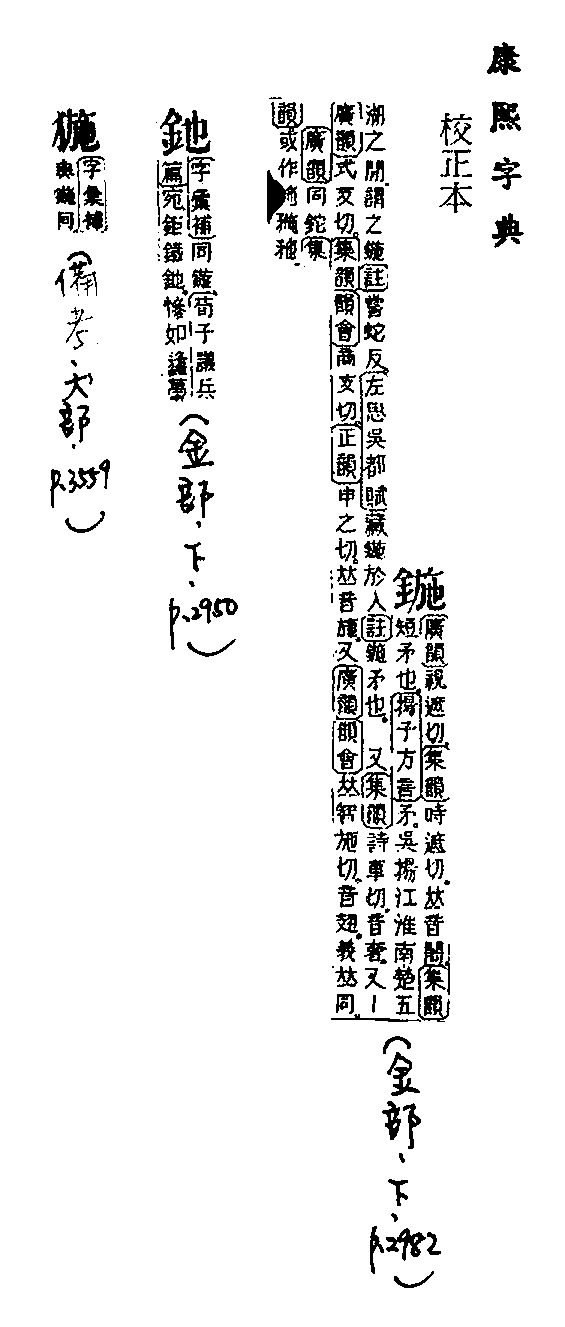 康熙字典
校正本
鍦
廣韻視遮切集韻時遮切𠀤音闍集韻
短矛也揚子方言矛吳揚江淮南楚五
湖之閒謂之鍦註嘗蛇反左思吳都賦藏鍦於人註鍦矛也 又集韻詩車切音奢又丨
廣韻式支切集韻韻會商支切正韻申之切𠀤音施又廣韻韻會𠀤智施切音翅義𠀤同
廣韻同鉈集
韻或作
(金部、下、p.2982)
釶
字彙補同鍦荀子議兵
篇宛鉅鐵釶慘如蠭蠆
(金部、下、p.2950)
字彙補
與鍦同
(備考、犬部、p.3559)